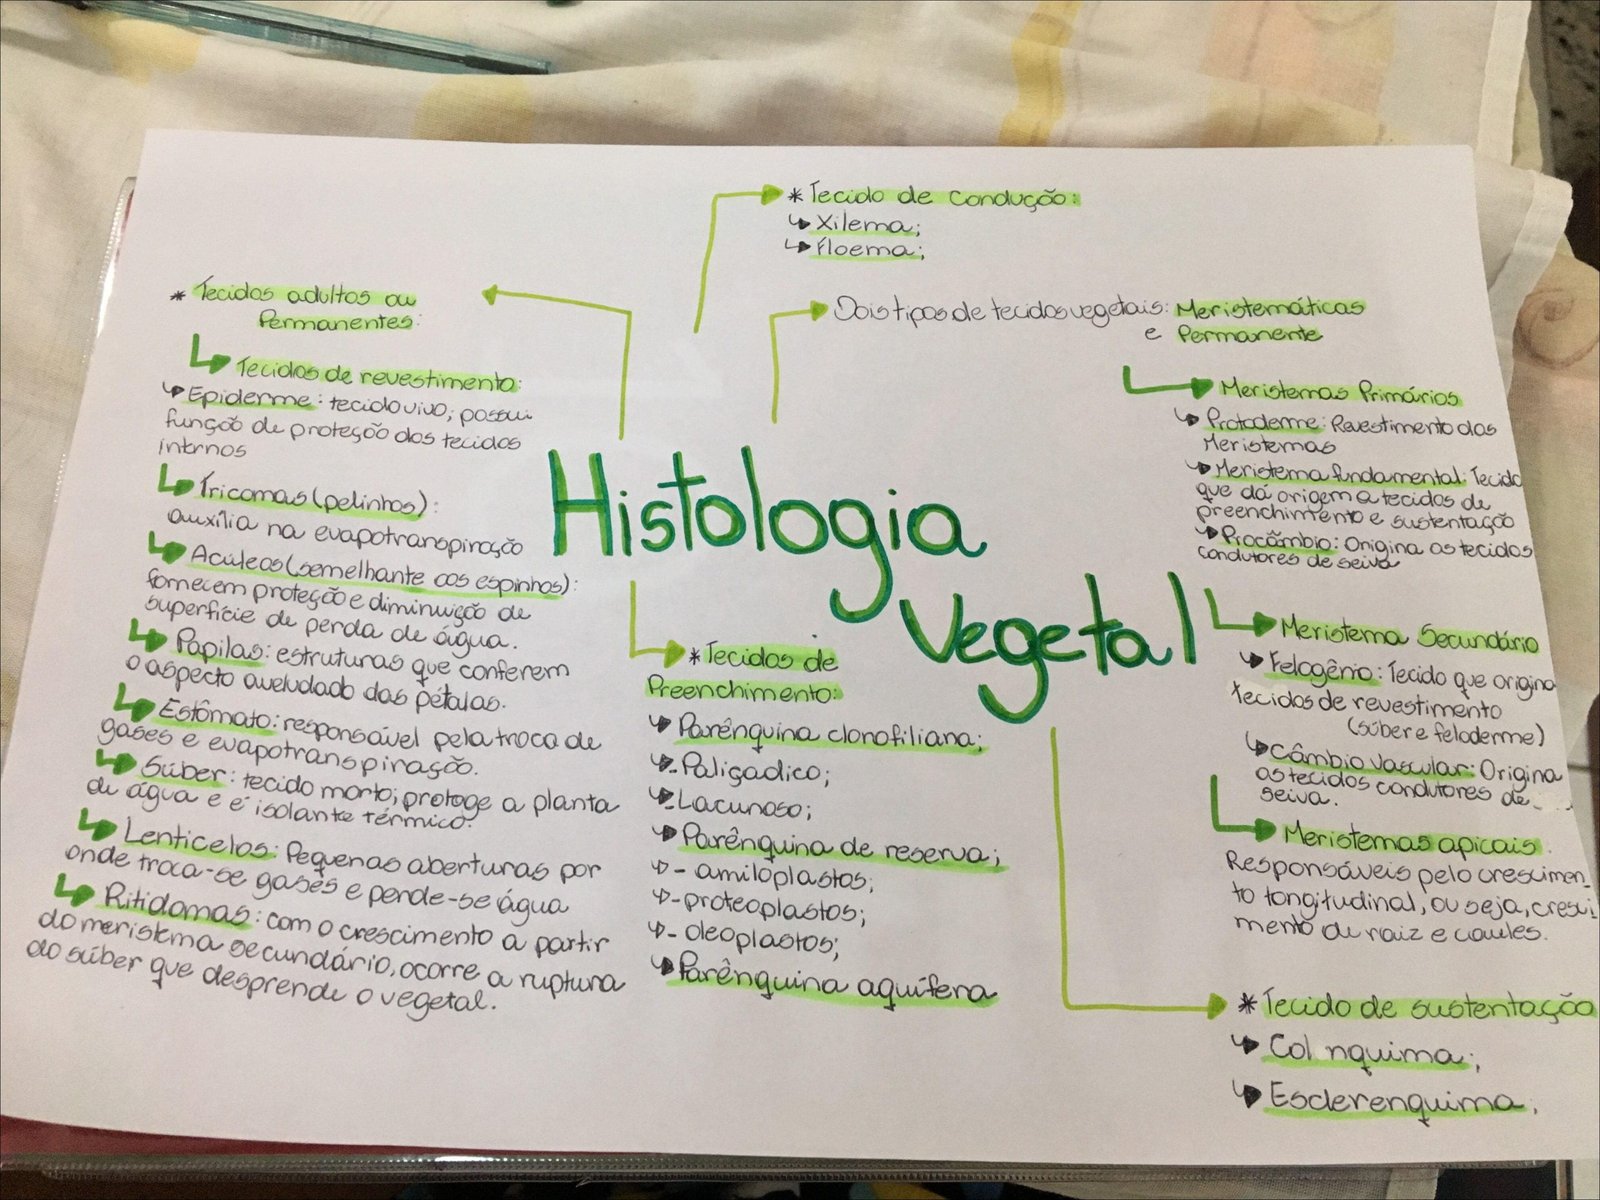 * Tecido de condução:
↳ Xilema;
↳ Floema;
Dois tipos de tecidos vegetais: Meristemáticas
e Permanente
Meristemas Primários
↳ Protoderme: Revestimento dos
Meristemas
↳ Meristema fundamental: Tecido
que dá origem a tecidos de
preenchimento e sustentação
↳ Procâmbio: Origina os tecidos
condutores de seiva
Meristema Secundário
↳ Felogênio: Tecido que origina
tecidos de revestimento
(súber e feloderme)
↳ Câmbio vascular: Origina
os tecidos condutores de
seiva.
Meristemas apicais.
Responsáveis pelo crescimen-
to longitudinal, ou seja, cresci
mento de raiz e caules.
* Tecidos adultos ou
Permanentes:
Tecidos de revestimento:
↳ Epiderme: tecido vivo; possui
função de proteção dos tecidos
internos
Tricomas (pelinhos):
auxília na evapotranspiração
Acúleos (semelhante aos espinhos):
fornecem proteção e diminuição de
superfície de perda de água.
Papilas: estruturas que conferem
o aspecto aveludado das pétalas.
Estômato: responsável pela troca de
gases e evapotranspiração.
Súber: tecido morto; protege a planta
de água e é isolante térmico.
Lenticelos: Pequenas aberturas por
onde troca-se gases e pende-se água
Ritidomas: com o crescimento a partir
do meristema secundário, ocorre a ruptura
do súber que desprende o vegetal.
Histologia
Vegetal
* Tecidos de
Preenchimento:
↳ Parênquina clorofiliana;
↳ - Paliçadico;
↳ - Lacunoso;
↳ Parênquina de reserva;
↳ - amiloplastos;
↳ - proteoplastos;
↳ - oleoplastos;
↳ Parênquina aquífera
* Tecido de sustentação
↳ Col nquima;
↳ Esclerenquima;